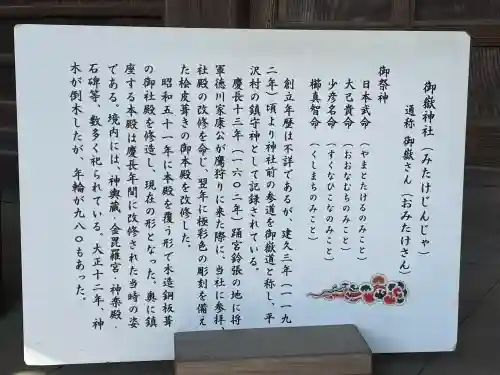 御嶽神社（みたけじんじゃ）
通称 御嶽さん（おみたけさん）
御祭神
日本武命（やまとたけるのみこと）
大己貴命（おおなむちのみこと）
少彦名命（すくなひこなのみこと）
櫛真智命（くしまちのみこと）
創立年歴は不詳であるが、建久三年（一一九
二年）頃より神社前の参道を御嶽道と称し、平
沢村の鎮守神として記録されている。
慶長十二年（一六〇二年）踊宮鈴張の地に将
軍徳川家康公が鷹狩りに来た際に、当社に参拝、
社殿の改修を命じ、翌年に極彩色の彫刻を備え
た桧皮葺きの御本殿を改修した。
昭和五十一年に本殿を覆う形で木造銅板葺
の御社殿を修造し、現在の形となった。奥に鎮
座する本殿は慶長年間に改修された当時の姿
である。境内には、神輿蔵・金毘羅宮・神楽殿・
石碑等、数多く祀られている。大正十二年、神
木が倒木したが、年輪が九八〇もあった。